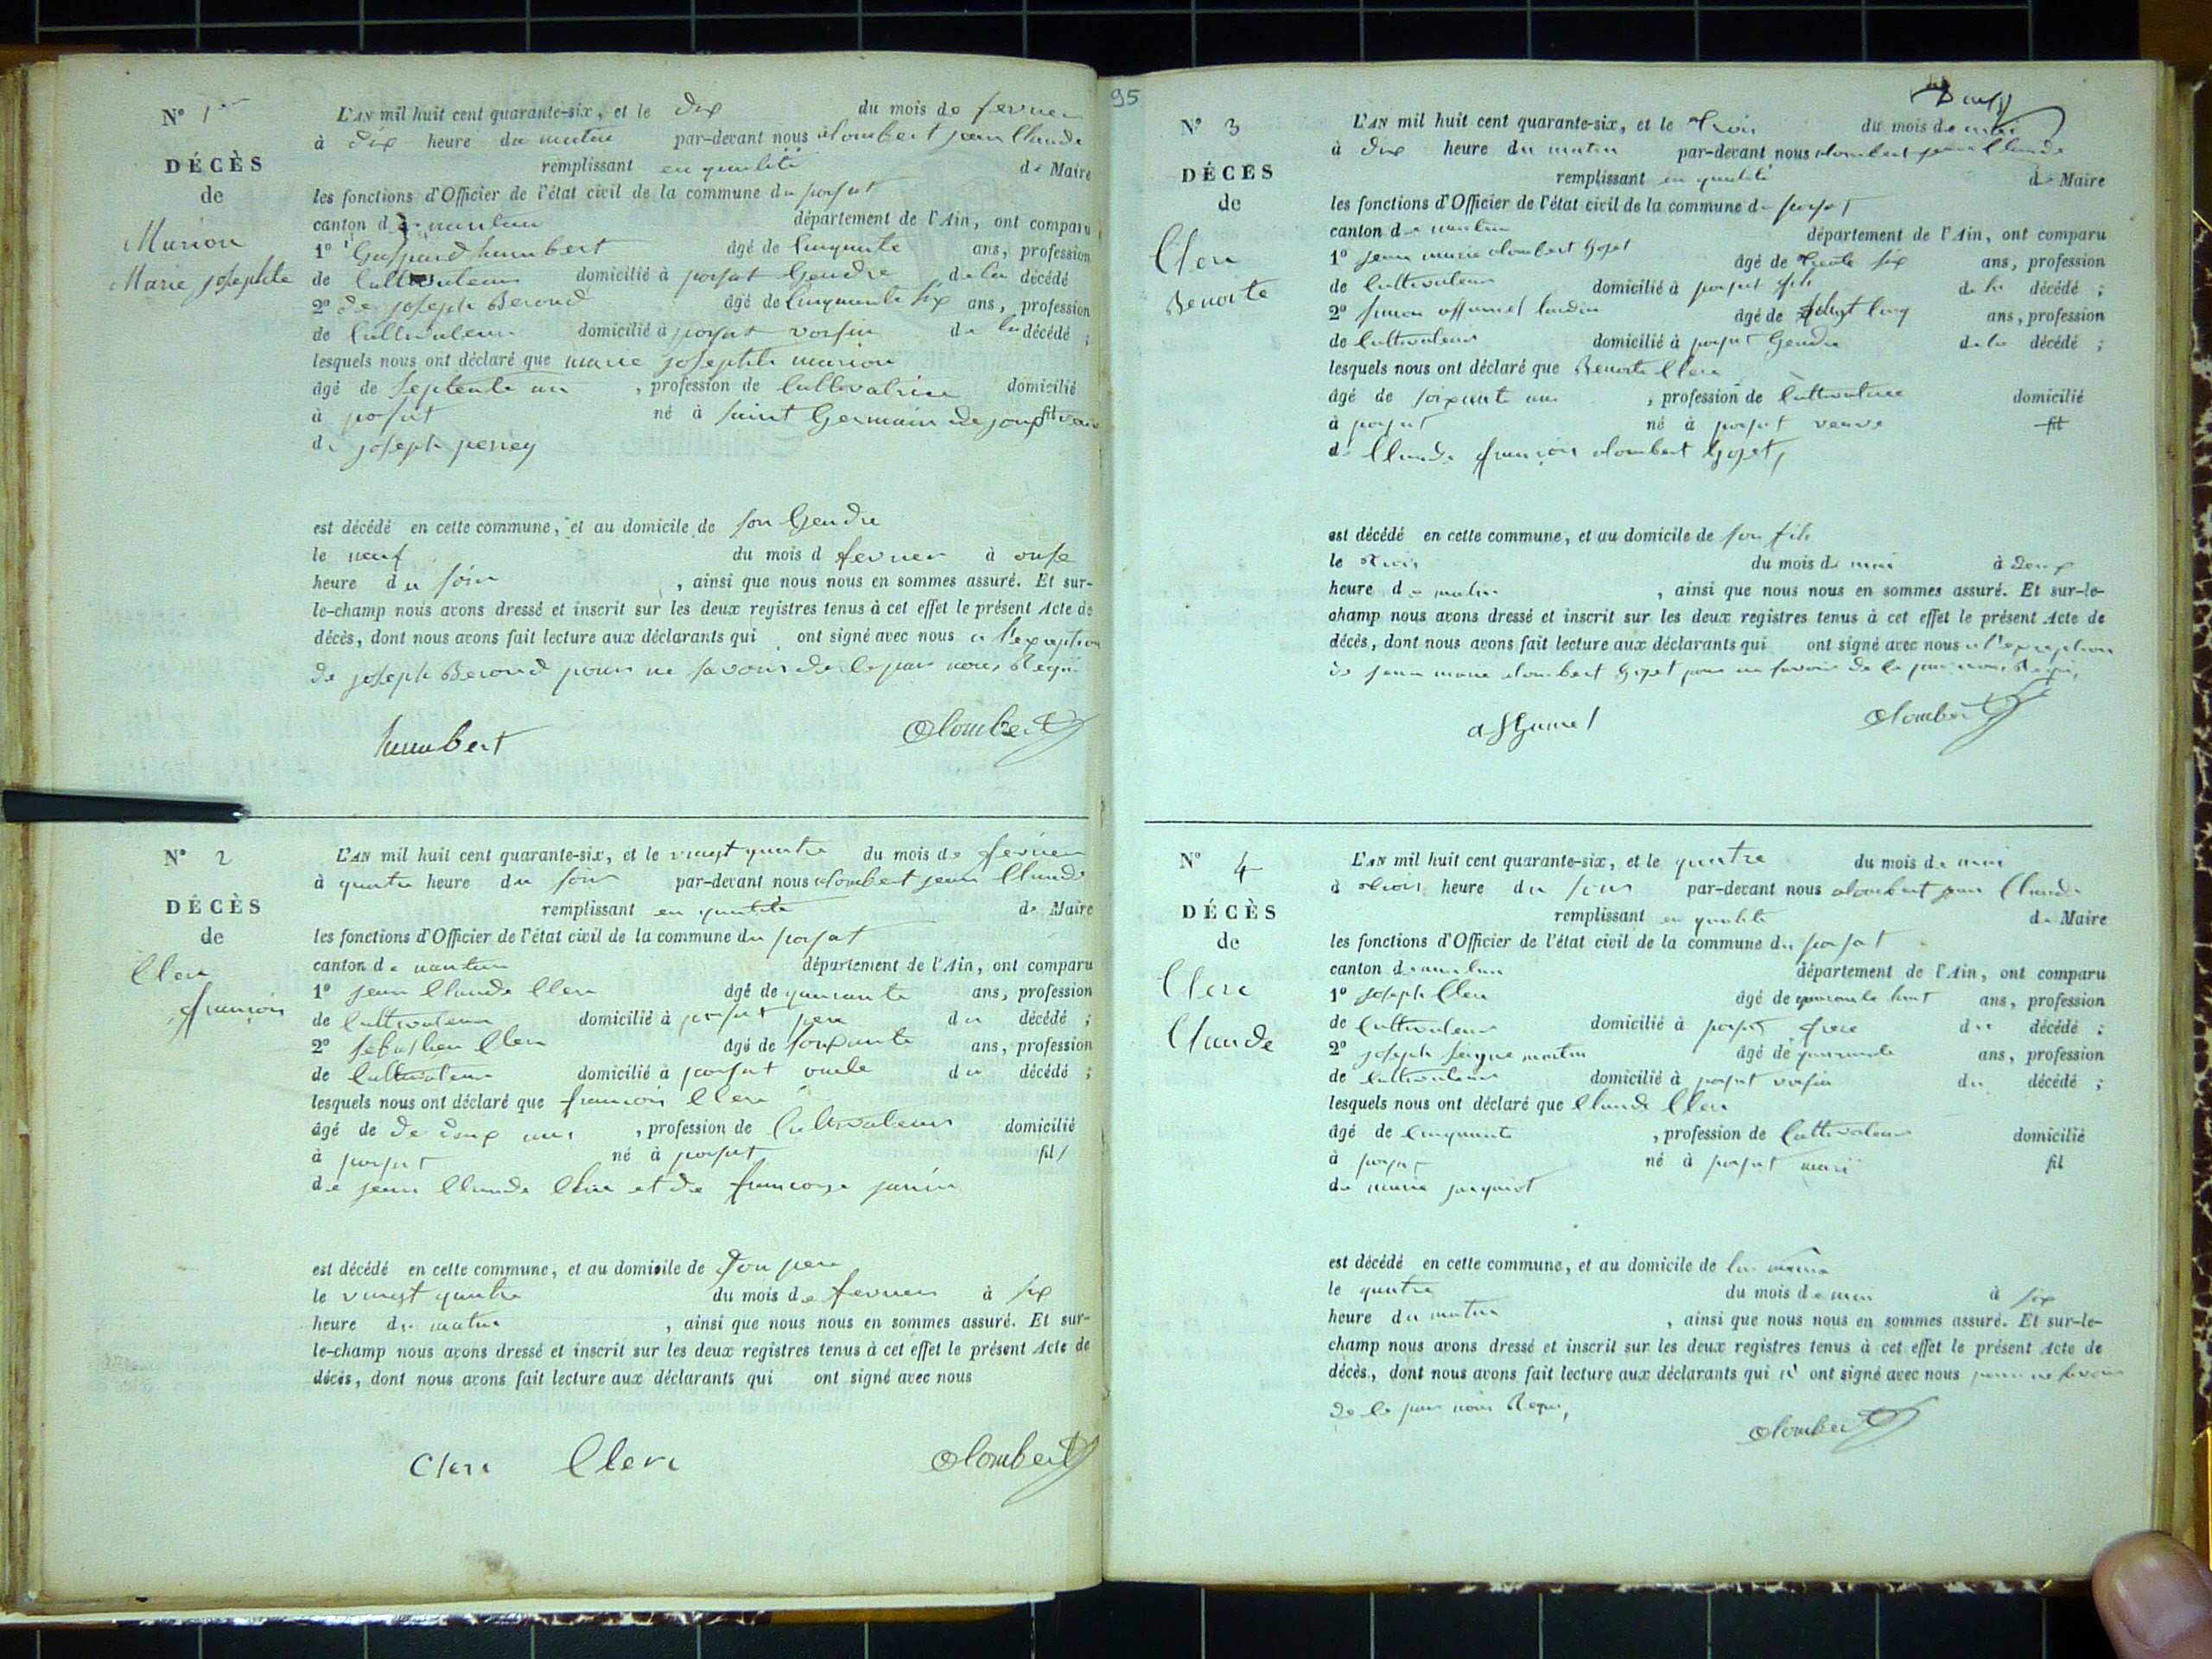 N° 1er
DÉCÈS
de
Marion
Marie josephte
L'AN mil huit cent quarante-six, et le dix du mois de fevrier
à dix heure du matin par-devant nous alombert jean Claude
remplissant en qualité de Maire
les fonctions d'Officier de l'état civil de la commune du
canton de nantua département de l'Ain, ont comparu
1° Gaspard humbert âgé de Cinquante ans, profession
de Cultivateur domicilié à Gendre de la décédé
2° de joseph Berond âgé de Cinquante six ans, profession
de Cultivateur domicilié à voisin de la décédé ;
lesquels nous ont déclaré que marie josephte marion
âgé de septente an , profession de Cultivatrice domicilié
à né à saint Germain de joux fil veuve
de joseph perrey
est décédé en cette commune, et au domicile de son Gendre
le neuf du mois d fevrier à onse
heure du soir , ainsi que nous nous en sommes assuré. Et sur-
le-champ nous avons dressé et inscrit sur les deux registres tenus à cet effet le présent Acte de
décès, dont nous avons fait lecture aux déclarants qui ont signé avec nous a l'exception
de joseph Berond pour ne savoir de ce par nous Requi
humbert alombert
N° 2
DÉCÈS
de
Clerc
françois
L'AN mil huit cent quarante-six, et le vingt quatre du mois de fevrier
à quatre heure du soir par-devant nous alombert jean Claude
remplissant en qualité de Maire
les fonctions d'Officier de l'état civil de la commune du
canton de nantua département de l'Ain, ont comparu
1° jean Claude Clerc âgé de quarante ans, profession
de Cultivateur domicilié à pere du décédé ;
2° sebastien Clerc âgé de soixante ans, profession
de Cultivateur domicilié à oncle du décédé ;
lesquels nous ont déclaré que françois Clerc
âgé de de deux ans , profession de Cultivateur domicilié
à né à fils
de jean Claude Clerc et de françoise
est décédé en cette commune, et au domicile de son pere
le vingt quatre du mois de fevrier à six
heure du matin , ainsi que nous nous en sommes assuré. Et sur-
le-champ nous avons dressé et inscrit sur les deux registres tenus à cet effet le présent Acte de
décès, dont nous avons fait lecture aux déclarants qui ont signé avec nous
Clerc Clerc alombert
95
N° 3
DÉCÈS
de
Clerc
Benoite
L'AN mil huit cent quarante-six, et le trois du mois de mai
à dix heure du matin par-devant nous alombert jean Claude
remplissant en qualité de Maire
les fonctions d'Officier de l'état civil de la commune d
canton de nantua département de l'Ain, ont comparu
1° jean marie alombert Goget âgé de trente six ans, profession
de Cultivateur domicilié à fils de la décédé ;
2° âgé de vingt cinq ans, profession
de Cultivateur domicilié à Gendre de la décédé ;
lesquels nous ont déclaré que Benoite Clerc
âgé de soixante ans , profession de Cultivatrice domicilié
à né à veuve fil
de Claude françois alombert Goget,
est décédé en cette commune, et au domicile de son fils
le trois du mois de mai à deux
heure du matin , ainsi que nous nous en sommes assuré. Et sur-le-
champ nous avons dressé et inscrit sur les deux registres tenus à cet effet le présent Acte de
décès, dont nous avons fait lecture aux déclarants qui ont signé avec nous a l'exception
de jean marie alombert Goget pour ne savoir de ce par nous Requi,
alombert
N° 4
DÉCÈS
de
Clerc
Claude
L'AN mil huit cent quarante-six, et le quatre du mois de mai
à trois heure du soir par-devant nous alombert jean Claude
remplissant en qualité de Maire
les fonctions d'Officier de l'état civil de la commune du
canton de nantua département de l'Ain, ont comparu
1° joseph Clerc âgé de quarante huit ans, profession
de Cultivateur domicilié à frere du décédé ;
2° joseph martin âgé de quarante ans, profession
de Cultivateur domicilié à voisin du décédé ;
lesquels nous ont déclaré que Claude Clerc
âgé de Cinquante , profession de Cultivateur domicilié
à né à mari fil
de marie
est décédé en cette commune, et au domicile de
le quatre du mois de mai à six
heure du matin , ainsi que nous nous en sommes assuré. Et sur-le-
champ nous avons dressé et inscrit sur les deux registres tenus à cet effet le présent Acte de
décès, dont nous avons fait lecture aux déclarants qui n' ont signé avec nous pour ne savoir
de ce par nous Requi,
alombert